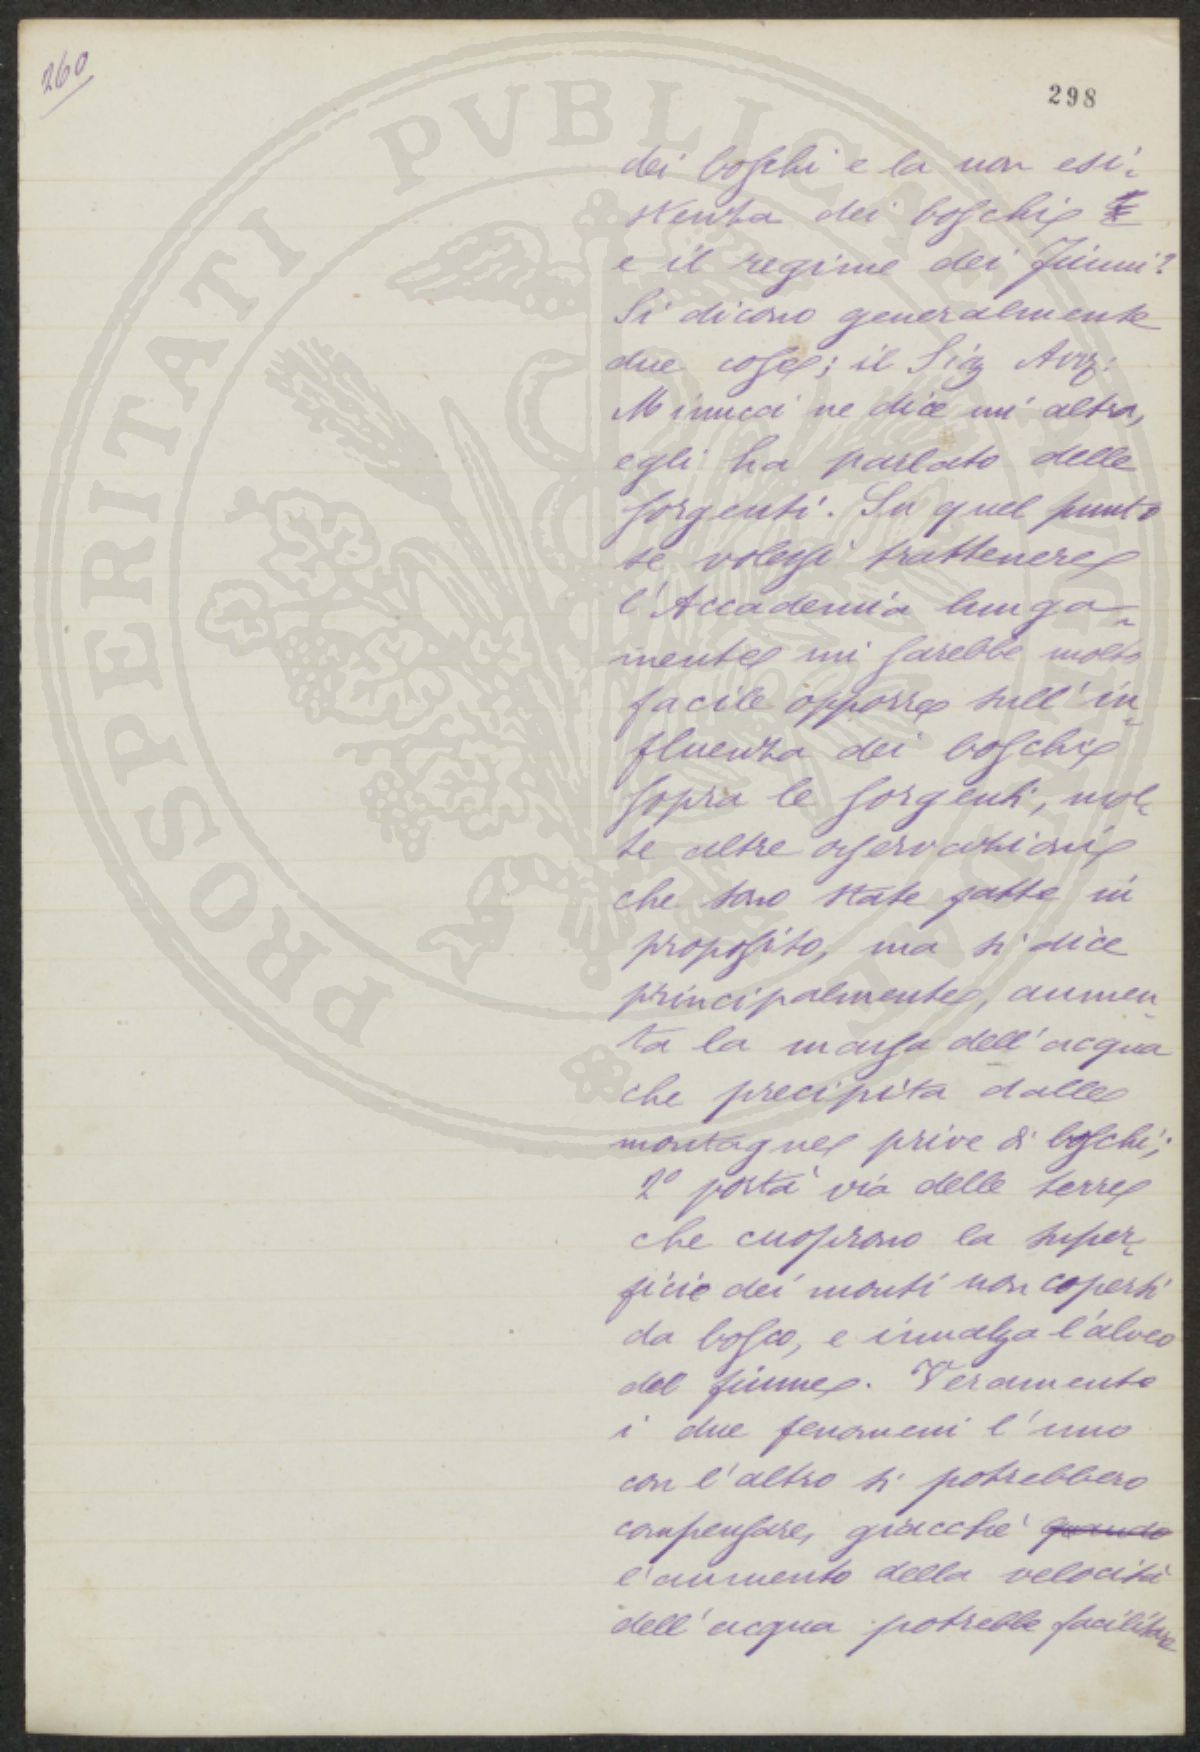 260
298
dei boschi e la non esi-
stenza dei boschi
e il regime dei fiumi?
Si dicono generalmente
due cose; il Sig Avv:
Minucci ne dice un'altra,
egli ha parlato delle
sorgenti. Su quel punto
se volessi trattenere
l'Accademia lunga-
mente mi sarebbe molto
facile opporre sull'in-
fluenza dei boschi
sopra le sorgenti, mol-
te altre osservazioni
che sono state fatte in
proposito, ma si dice
principalmente, aumen-
ta la massa dell'acqua
che precipita dalle
montagne prive di boschi;
2º porta via delle terre
che cuoprono la super-
ficie dei monti non coperti
da bosco, e innalza l'alveo
del fiume. Veramente
i due fenomeni l'uno
con l'altro si potrebbero
compensare, giacchè quando
l'aumento della velocità
dell'acqua potrebbe facilitare
PROSPERITATI PVBLICAE